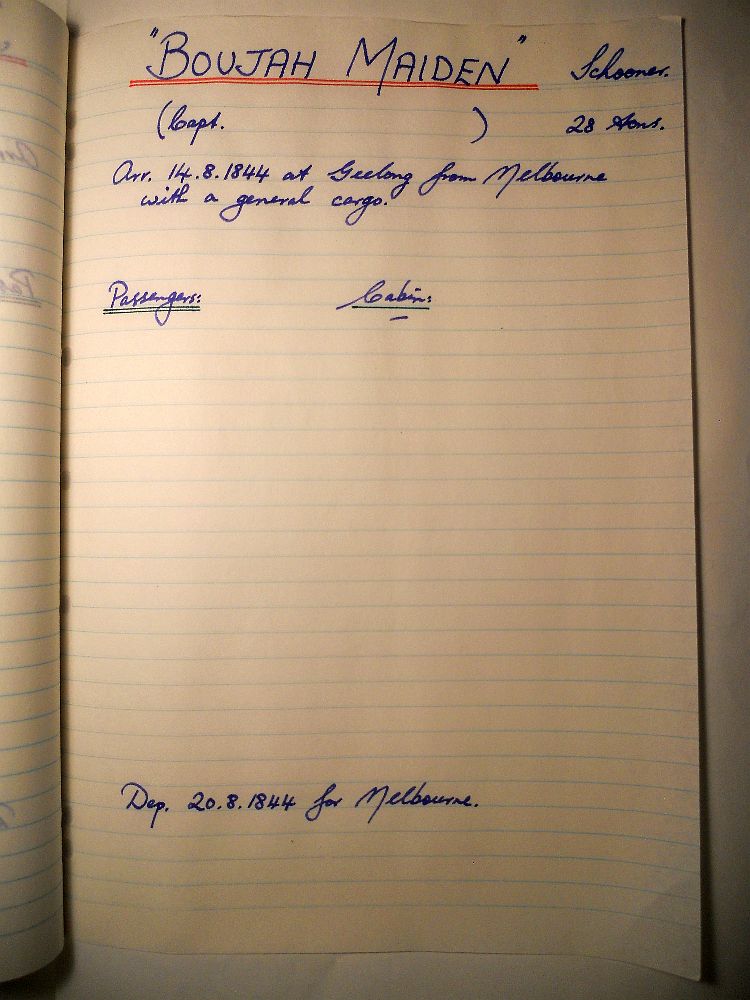 "BOUJAH MAIDEN" Schooner.
(Capt. ) 28 tons.
Arr. 14.8.1844 at Geelong from Melbourne
with a general cargo.
Passengers: Cabin:
Dep. 20.8.1844 for Melbourne.